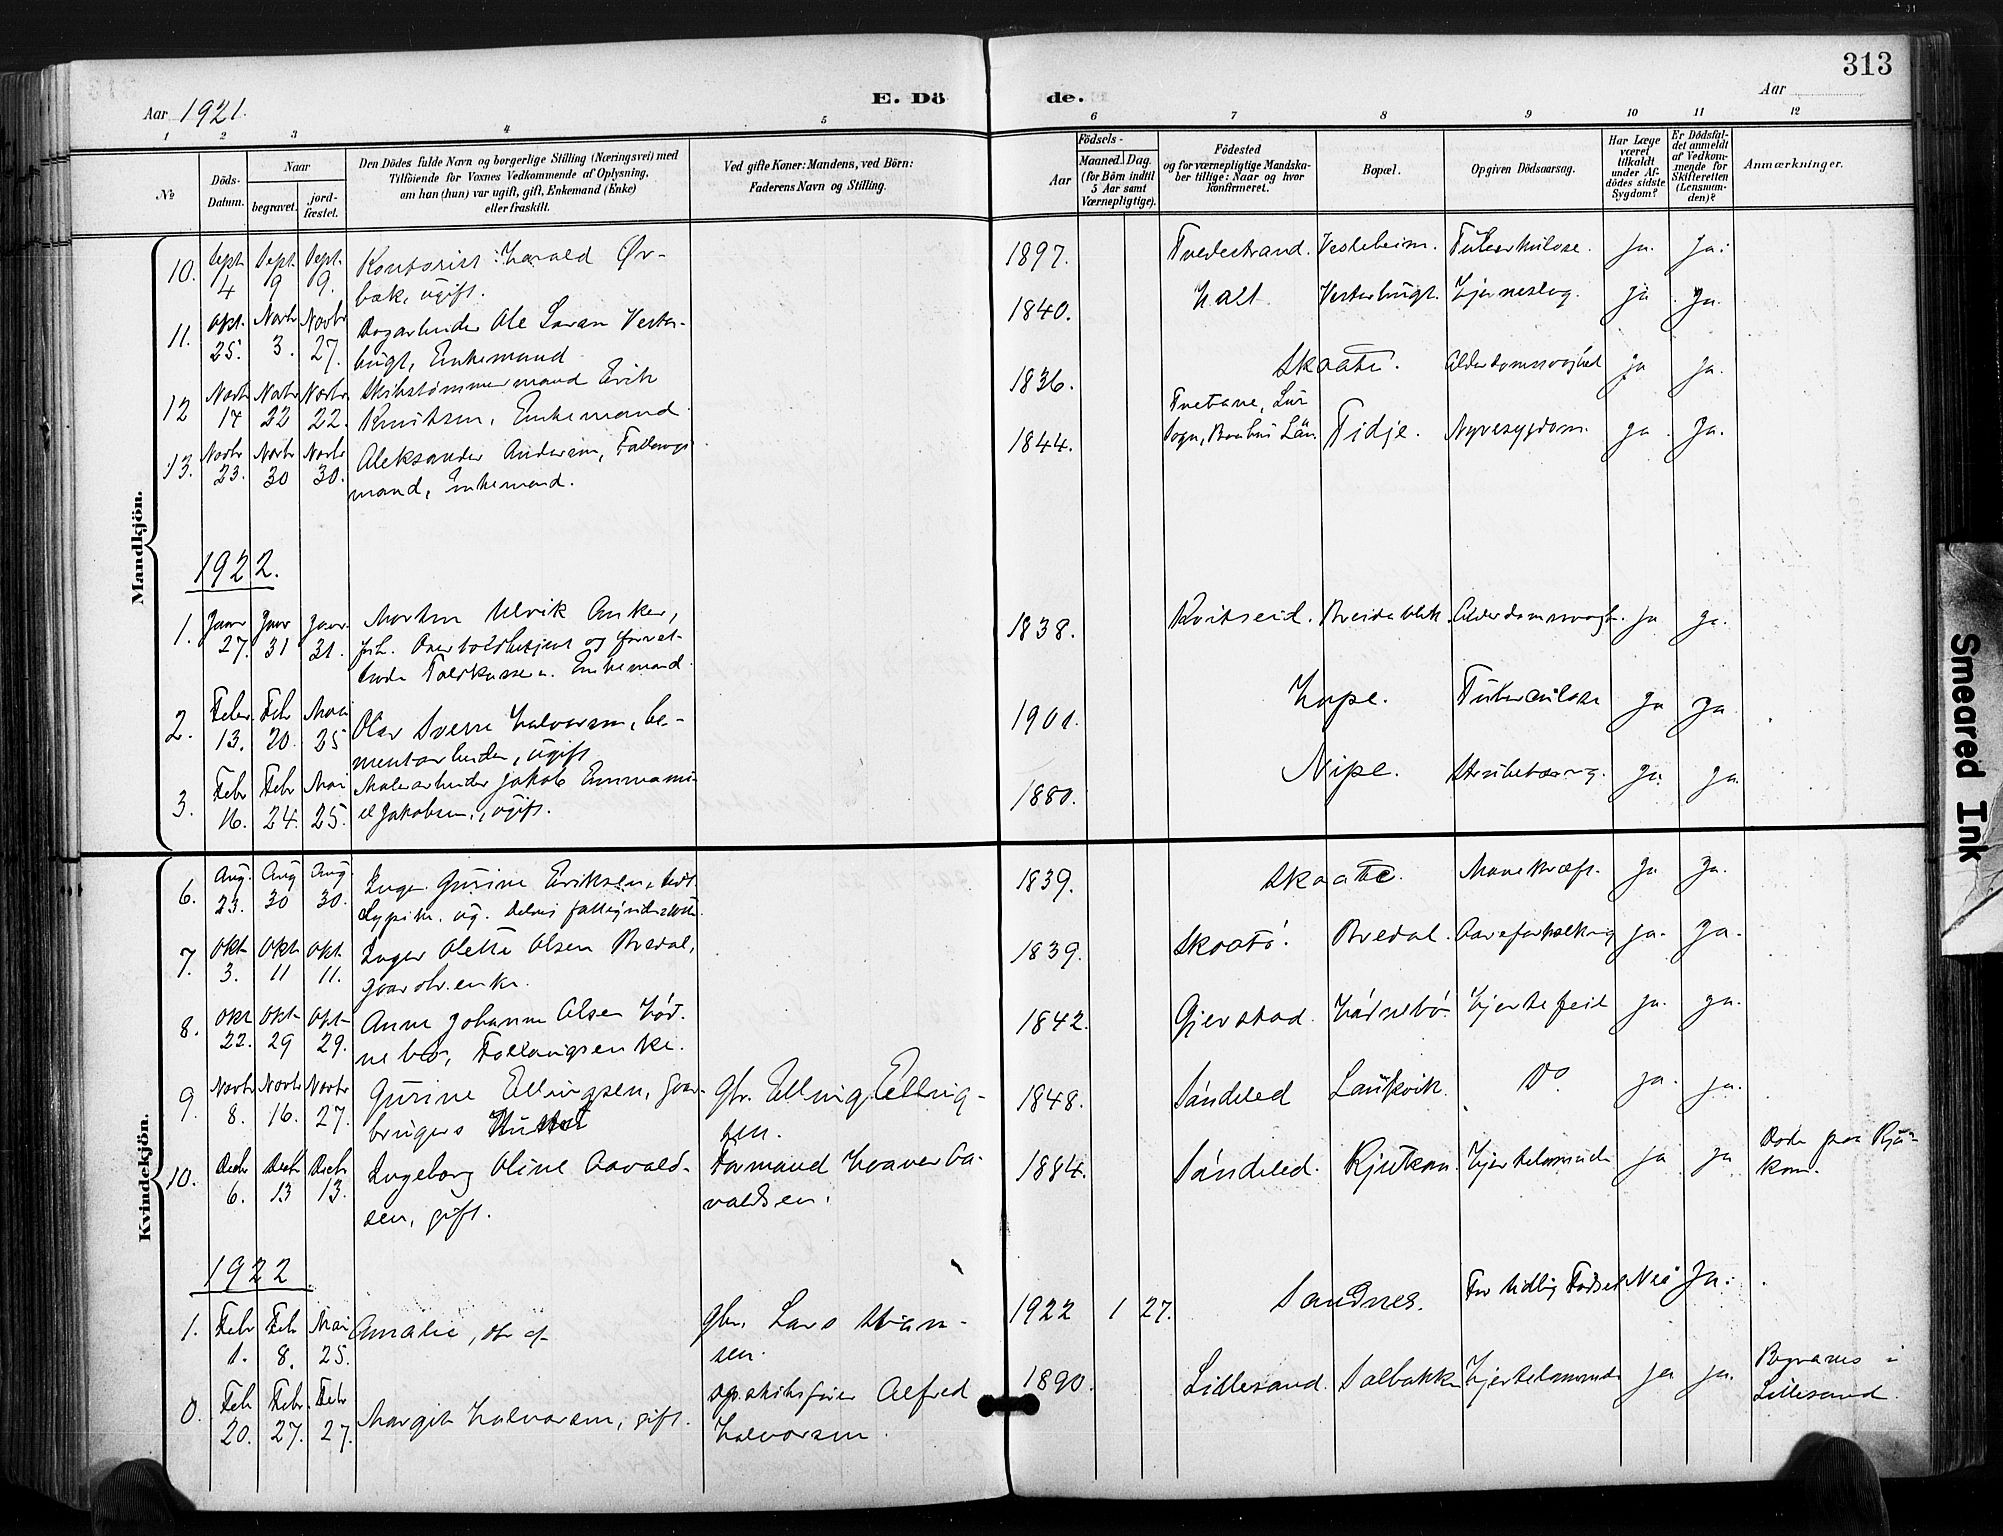 313
Aar 1921.
E. Döde.
Aar
1 2 3 4 5 6 7 8 9 10 11 12
№
Döds-Datum.
Naar
begravet.
jord-fæstet.
Den Dödes fulde Navn og borgerlige Stilling (Næringsvei) med
Tilföiende for Voxnes Vedkommende af Oplysning,
om han (hun) var ugift, gift, Enkemand (Enke)
eller fraskilt.
Ved gifte Koner: Mandens, ved Börn:
Faderens Navn og Stilling.
Födsels-
Aar
Maaned. Dag.
(for Börn indtil
5 Aar samt
Værnepligtige).
Födested
og for værnepligtige Mandska-
ber tillige: Naar og hvor
konfirmeret.
Bopæl.
Opgiven Dödsaarsag.
Har Læge
været
tilkaldt
under Af-
dödes sidste
Sygdom?
Er Dödsfal-
det anmeldt
af Vedkom-
mende for
Skifteretten
(Lensman-
den)?
Anmærkninger.
Mandkjön.
10. Sept. 4 Sept. 9 Sept. 9. Kontorist Harald Ør-
bæk, ugift. 1897. Tvedestrand. Vesleheim. Tuberkulose. Ja. Ja.
11. Okt. 25. Novbr 3. Novbr 27. Ole Larsen Vester-
bugt, Enkemand 1840. Holt. Vesterbugt. Hjerneslag. Ja Ja.
12 Novbr 14 Novbr 22 Novbr 22. Skibstømmermand Erik
Knutsen, Enkemand. 1836. Skaatø. Alderdomssvaghed Ja Ja.
13. Novbr 23. Novbr 30 Novbr 30. Aleksander Andersen, Fattiglægs-
mand, Enkemand. 1844. Tvetane, Lur
Sogn, Bohus Län. Tidje. Nyresygdom. Ja. Ja.
1922.
1. Janr 27. Janr 31 Janr 31. Morten Ulrik Anker,
forh. Overtoldbetjent og
Toldkasserer. Enkemand. 1838. Kvitseid. Breidablik. Alderdomssvagh. Ja Ja.
2. Febr 13. Febr 20. Mai 25 Olav Sverre Halvorsen, ce-
mentarbeider, ugift. 1901. Hope. Tuberculose Ja Ja.
3. Febr 16. Febr 24. Mai 25. Malerarbeider Jakob Emmanu-
el Jakobsen, ugift. 1880. Nipe. Strubetæring. Ja. Ja.
Kvindekjön.
6. Aug. 23. Aug 30 Aug 30. Inger Gurine Eriksen, 1839. Skaatø. Mavekræft. Ja Ja.
7. Okt 3. Okt 11 Okt 11. Inger Olette Olsen Bredal,
gaardbr.enke. 1839. Skaatø. Bredal. Aareforkalkning Ja. Ja.
8. Okt 22. Okt 29 Okt 29. Anne Johanne Olsen Hør-
nebø, 1842. Gjerstad. Hørnebø. Hjertefeil Ja. Ja.
9. Novbr 8. Novbr 16. Novbr 27. Gurine Ellingsen, gaard-
brugers Hustru Gbr. Elling Elling-
sen. 1848. Søndeled Laukvik. Do. Ja. Ja.
10. Decbr 6. Decbr 13 Decbr 13. Ingeborg Oline Aavald-
sen, gift. Formand Haaver Aa-
valdsen. 1884. Søndeled. Rjukan. Hjertelammelse Ja Ja Døde paa Rju-
kan.
1922.
1. Febr 1. Febr 8. Mai 25. Amalie, dtr. af Gbr. Lars
sen. 1922 1 27. Sandnes. For tidlig Fødsel Nei Ja.
0. Feb 20. Febr 27. Febr 27. Margit Halvorsen, gift. Alfred
Halvorsen. 1890. Lillesand. Solbakken Hjertelammelse Ja Ja. Begraves i
Lillesand.
Smeared Ink